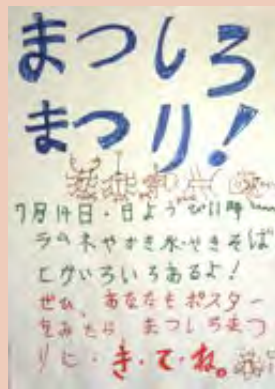 まつしろ
まつり！
7月14日・日ようび11時〜
ラムネやかき氷・やきそば
とかいろいろあるよ！
ぜひ、あなたもポスター
をみたら、まつしろまつ
りに・き・て・ね。